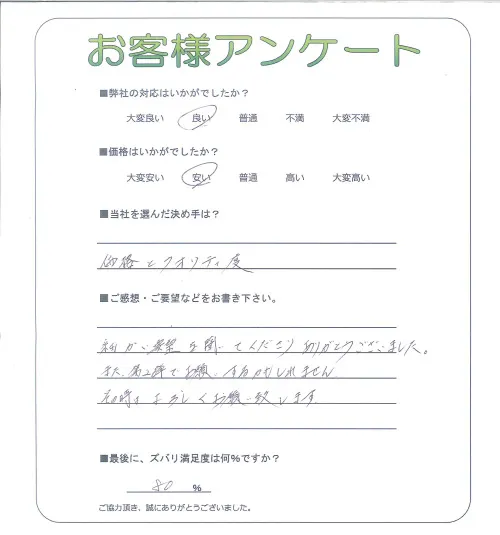 お客様アンケート
■弊社の対応はいかがでしたか？
大変良い 良い 普通 不満 大変不満
■価格はいかがでしたか？
大変安い 安い 普通 高い 大変高い
■当社を選んだ決め手は？
価格とクオリティ度
■ご感想・ご要望などをお書き下さい。
要望を聞いてくださりありがとうございました。
また、第2弾でお願いするかもしれません
その時はよろしくお願い致します
■最後に、ズバリ満足度は何％ですか？
80 ％
ご協力頂き、誠にありがとうございました。